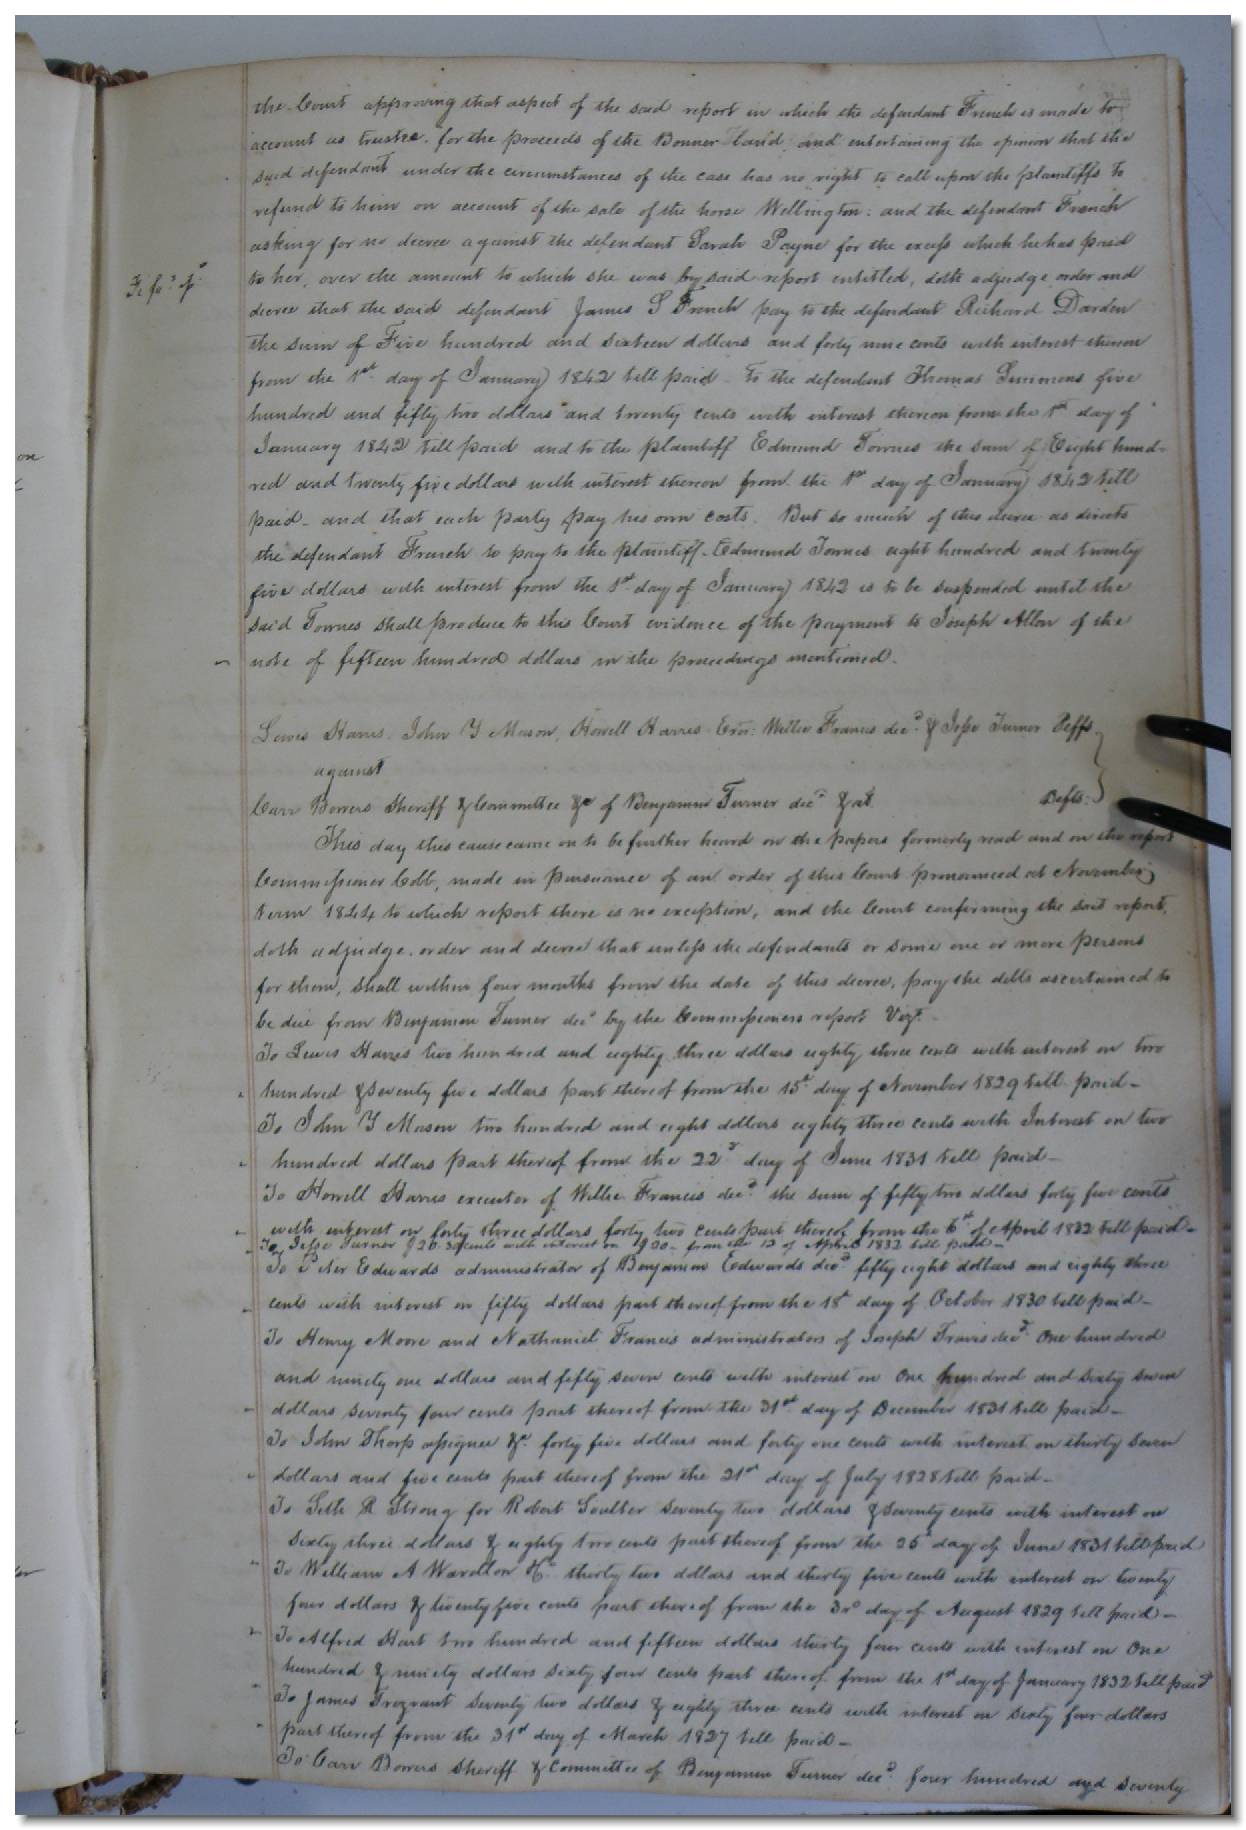 the Court approving that aspect of the said report in which the defendant French is made to
account as trustee. for the proceeds of the Bonner land, and entertaining the opinion that the
said defendant under the circumstances of the case has no right to call upon the plaintiffs to
refund to him on account of the sale of the horse Wellington: and the defendant French
asking for no decree against the defendant Sarah Payne for the excess which he has paid
to her, over the amount to which she was by said report entitled, doth adjudge order and
Fi fa
decree that the said defendant James S French pay to the defendant Richard Darden
the sum of Five hundred and sixteen dollars and forty nine cents with interest thereon
from the 1st day of January 1842 till paid - to the defendant Thomas Simmons five
hundred and fifty two dollars and twenty cents with interest thereon from the 1st day of
January 1842 till paid and to the plaintiff Edmund Townes the sum of Eight hund-
red and twenty five dollars with interest thereon from the 1st day of January 1842 till
paid - and that each party pay his own costs. But so much of this decree as directs
the defendant French to pay to the plaintiff Edmund Townes eight hundred and twenty
five dollars with interest from the 1st day of January 1842 is to be suspended until the
said Townes shall produce to this Court evidence of the payment to Joseph Allen of the
note of fifteen hundred dollars in the proceedings mentioned.
Lewis Harris. John Y Mason, Howell Harris Exor: Willie Francis decd & Jesse Turner Plffs
against
Carr Bowers Sheriff & Committee &c of Benjamin Turner decd & al Defts:
This day this cause came on to be further heard on the papers formerly read and on the report
Commissioner Cobb, made in pursuance of an order of this Court pronounced at November
term 1844 to which report there is no exception, and the Court confirming the said report,
doth adjudge. order and decree that unless the defendants or some one or more persons
for them, shall within four months from the date of this decree, pay the debts ascertained to
be due from Benjamin Turner decd by the Commissioners report Vizt.
To Lewis Harris two hundred and eighty three dollars eighty three cents with interest on two
hundred & seventy five dollars part thereof from the 15t day of November 1829 till paid -
To John Y Mason two hundred and eight dollars eighty three cents with Interest on two
hundred dollars part thereof from the 22d day of June 1831 till paid -
To Howell Harris executor of Willie Francis decd the sum of fifty two dollars forty five cents
with interest on forty three dollars forty two cents part thereof from the 6t of April 1832 till paid -
To Jesse Turner cents with interest on $20 - from the 12 of April 1832 till paid -
To Peter Edwards administrator of Benjamin Edwards decd fifty eight dollars and eighty three
cents with interest on fifty dollars part thereof from the 18t day of October 1830 till paid -
To Henry Moore and Nathaniel Francis administrators of Joseph Travis decd One hundred
and ninety one dollars and fifty seven cents with interest on One hundred and sixty seven
dollars seventy four cents part thereof from the 31st day of December 1831 till paid -
To John Thorp assignee &c. forty five dollars and forty one cents with interest on thirty seven
dollars and five cents part thereof from the 21st day of July 1828 till paid -
To Seth R Strong for Robert Coulter seventy two dollars & seventy cents with interest on
sixty three dollars & eighty two cents part thereof from the 25 day of June 1831 till paid
To William A Wardlow &c. thirty two dollars and thirty five cents with interest on twenty
four dollars & twenty five cents part thereof from the 3rd day of August 1829 till paid -
To Alfred Hart two hundred and fifteen dollars thirty four cents with interest on One
hundred & ninety dollars sixty four cents part thereof from the 1st day of January 1832 till paid
To James Trezvant Seventy two dollars & eighty three cents with interest on sixty four dollars
part thereof from the 31st day of March 1827 till paid -
To Carr Bowers Sheriff & Committee of Benjamin Turner decd. four hundred and seventy